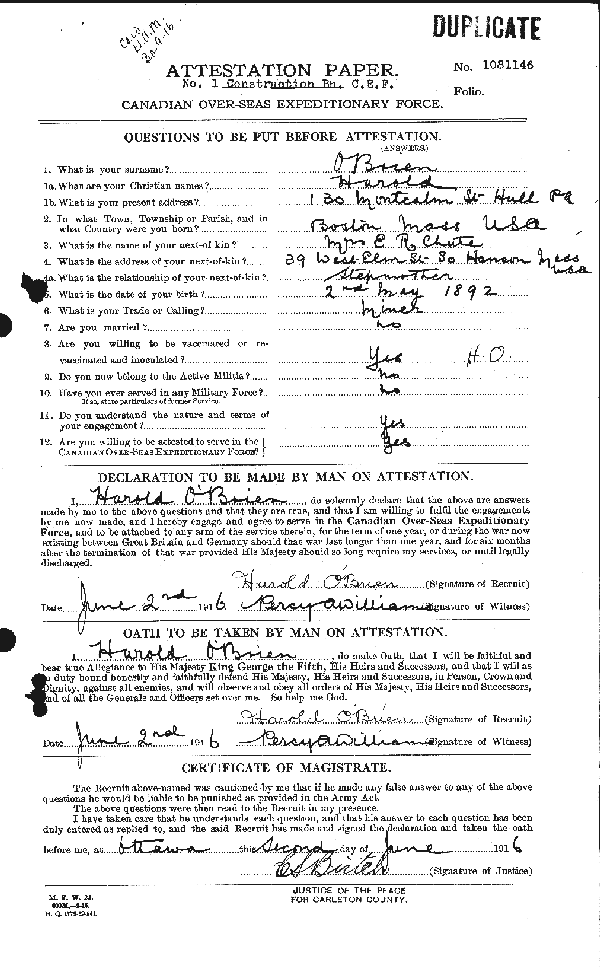 DUPLICATE
ATTESTATION PAPER.
No. 1031146
No. 1 Construction Bn. C.E.F.
Folio.
CANADIAN OVER-SEAS EXPEDITIONARY FORCE.
QUESTIONS TO BE PUT BEFORE ATTESTATION.
(ANSWERS)
1. What is your surname? O'Brien
1a. What are your Christian names? Harold
1b. What is your present address? 130 Montcalm St Hull PQ
2. In what Town, Township or Parish, and in
what Country were you born? Boston Mass USA
3. What is the name of your next-of kin? Mrs E R Chute
4. What is the address of your next-of-kin? 39 West Elm St So Hanson Mass
USA
4a. What is the relationship of your next-of-kin? Stepmother
5. What is the date of your birth? 2nd May 1892
6. What is your Trade or Calling? Miner
7. Are you married? no
8. Are you willing to be vaccinated or re-
vaccinated and inoculated? Yes H.O.
9. Do you now belong to the Active Militia? No
10. Have you ever served in any Military Force? No
If so, state particulars of former Service.
11. Do you understand the nature and terms of
your engagement? Yes
12. Are you willing to be attested to serve in the
CANADIAN OVER-SEAS EXPEDITIONARY FORCE? Yes
DECLARATION TO BE MADE BY MAN ON ATTESTATION.
I, Harold O'Brien, do solemnly declare that the above are answers
made by me to the above questions and that they are true, and that I am willing to fulfil the engagements
by me now made, and I hereby engage and agree to serve in the Canadian Over-Seas Expeditionary
Force, and to be attached to any arm of the service therein, for the term of one year, or during the war now
existing between Great Britain and Germany should that war last longer than one year, and for six months
after the termination of that war provided His Majesty should so long require my services, or until legally
discharged.
Harold O'Brien (Signature of Recruit)
Date June 2nd 1916 Percy A Williams (Signature of Witness)
OATH TO BE TAKEN BY MAN ON ATTESTATION.
I, Harold O'Brien, do make Oath, that I will be faithful and
bear true Allegiance to His Majesty King George the Fifth, His Heirs and Successors, and that I will as
in duty bound honestly and faithfully defend His Majesty, His Heirs and Successors, in Person, Crown and
Dignity, against all enemies, and will observe and obey all orders of His Majesty, His Heirs and Successors,
and of all the Generals and Officers set over me. So help me God.
Harold O'Brien (Signature of Recruit)
Date June 2nd 1916 Percy A Williams (Signature of Witness)
CERTIFICATE OF MAGISTRATE.
The Recruit above-named was cautioned by me that if he made any false answer to any of the above
questions he would be liable to be punished as provided in the Army Act.
The above questions were then read to the Recruit in my presence.
I have taken care that he understands each question, and that his answer to each question has been
duly entered as replied to, and the said Recruit has made and signed the declaration and taken the oath
before me, at Ottawa this Second day of June 1916
(Signature of Justice)
JUSTICE OF THE PEACE
FOR CARLETON COUNTY.
M. F. W.